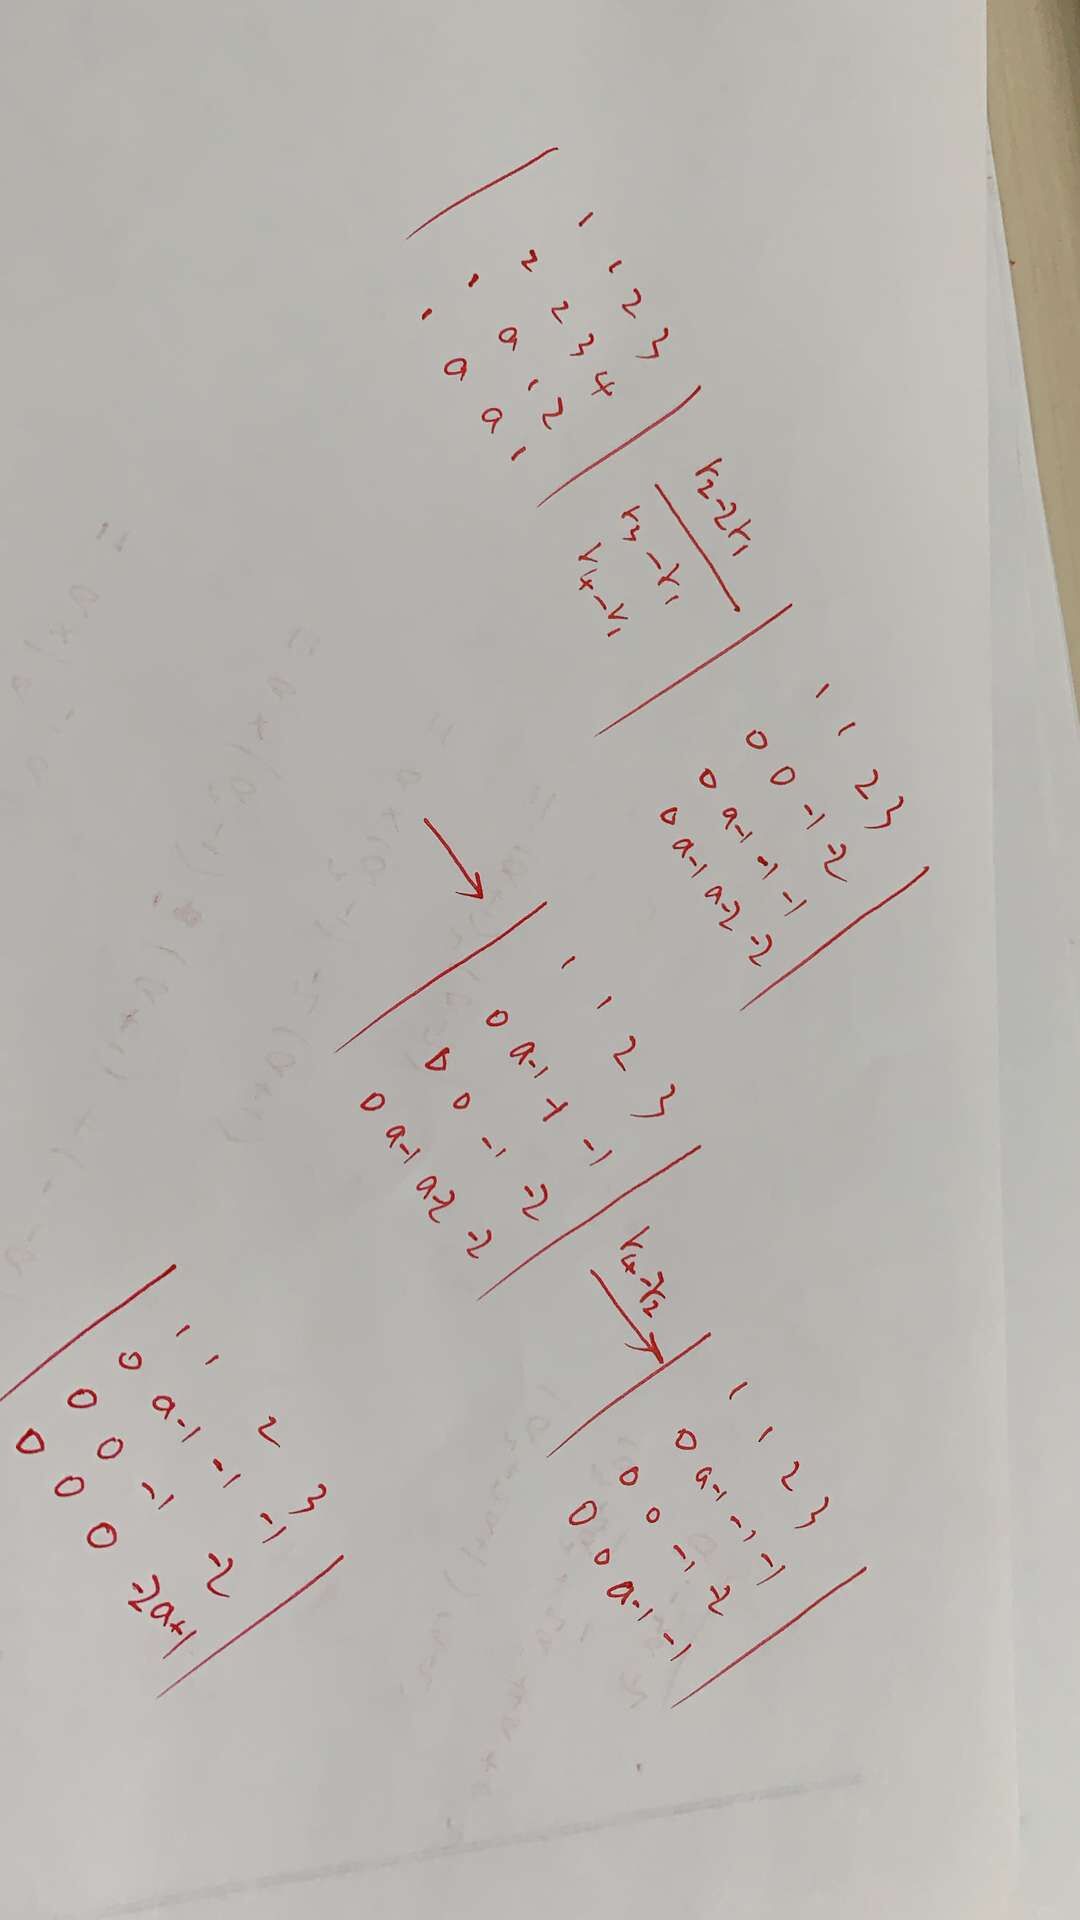 | 1 1 2 3 |
| 2 2 3 4 |
| 1 a 1 2 |
| 1 a a 1 |
r2-2r1
r3-r1
r4-r1
| 1 1 2 3 |
| 0 0 -1 -2 |
| 0 a-1 -1 -1 |
| 0 a-1 a-2 -2 |
→
| 1 1 2 3 |
| 0 a-1 -1 -1 |
| 0 0 -1 -2 |
| 0 a-1 a-2 -2 |
r4-r2
→
| 1 1 2 3 |
| 0 a-1 -1 -1 |
| 0 0 -1 -2 |
| 0 0 a-1 -1 |
| 1 1 2 3 |
| 0 a-1 -1 -1 |
| 0 0 -1 -2 |
| 0 0 0 -2a+1 |